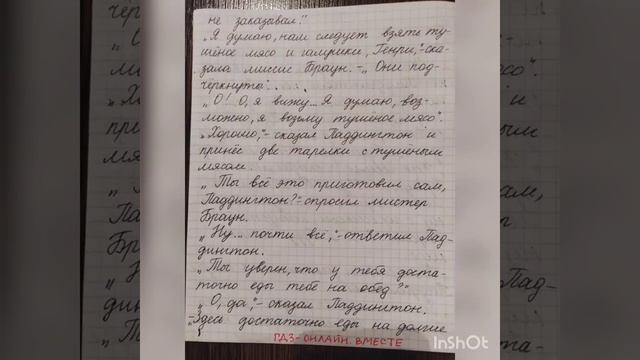 не заказывал."
„Я думаю, нам следует взять ту-
шёное мясо и гамрики, Генри,"- ска-
зала миссис Браун. -„ Они под-
чёркнуты".
„О! О, я вижу... Я думаю, воз-
можно, я возьму тушёное мясо".
„Хорошо,"- сказал Паддингтон и
принёс две тарелки с тушёным
мясом.
„Ты всё это приготовил сам,
Паддингтон?"- спросил мистер
Браун.
„Ну... почти всё,"- ответил Пад-
дингтон.
„Ты уверен, что у тебя доста-
точно еды тебе на обед?"
„О, да,"- сказал Паддингтон.
-„Здесь достаточно еды на долгие
ГДЗ-ОНЛАЙН. ВМЕСТЕ
InShOt